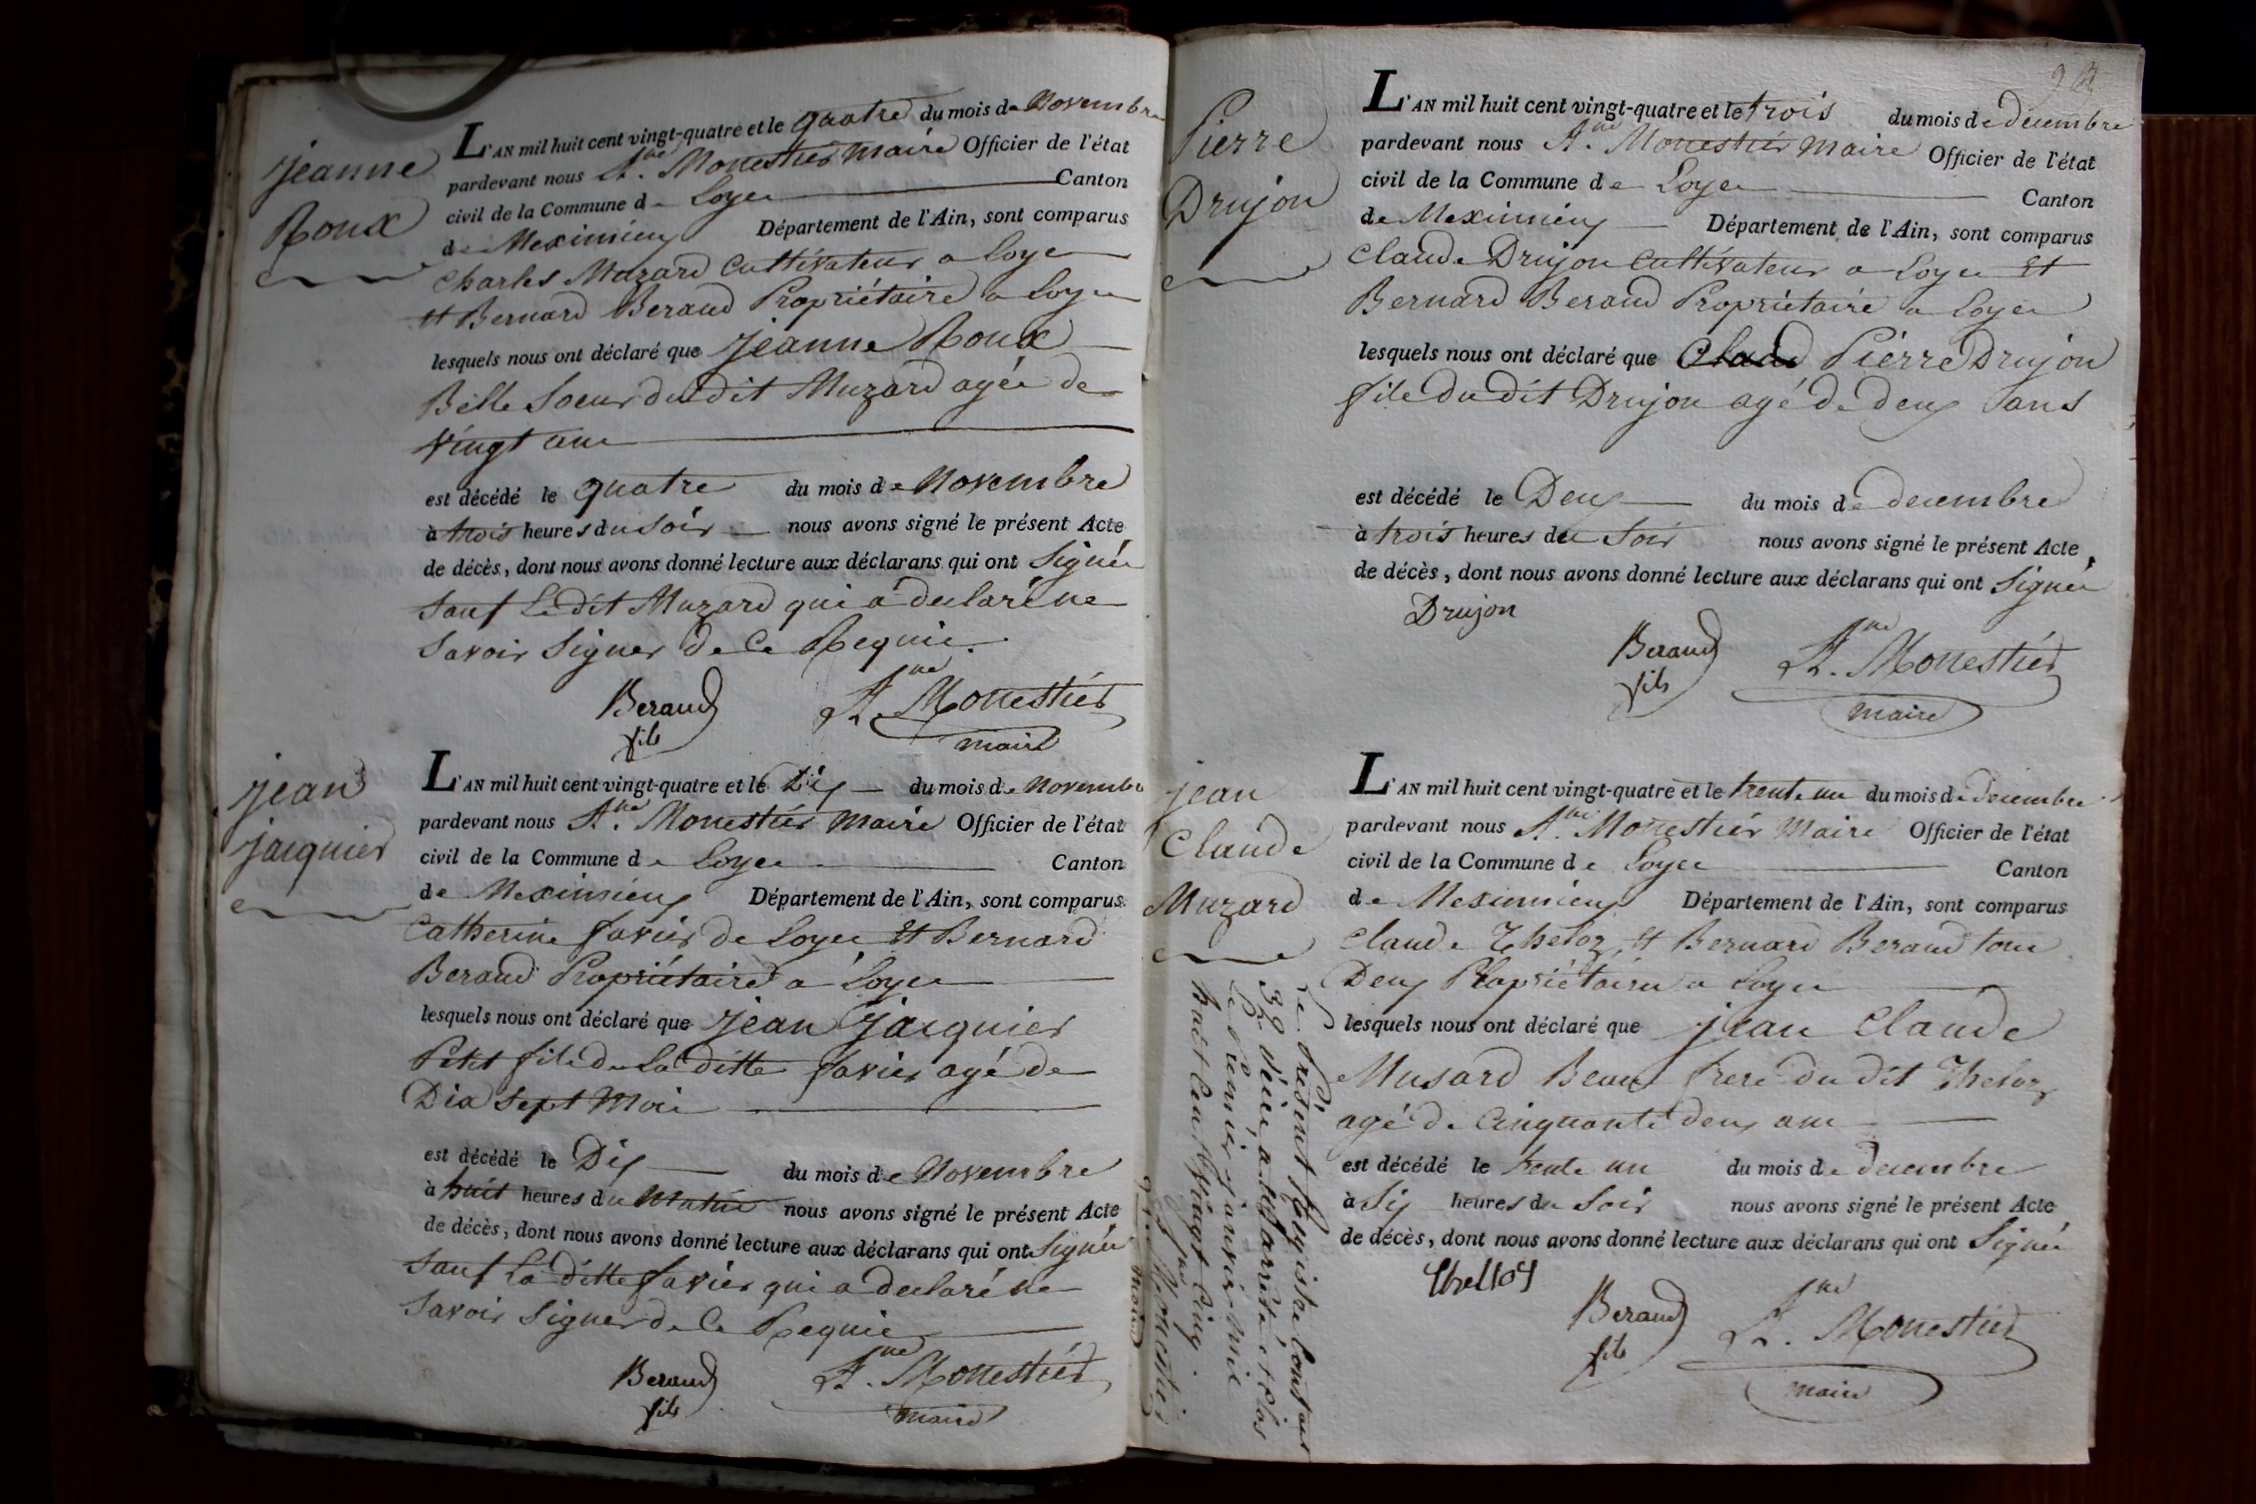 jeanne
Roux
L'AN mil huit cent vingt-quatre et le quatre du mois de Novembre
pardevant nous A.ne Monestier maire Officier de l'état
civil de la Commune de Loyes Canton
de Meximieux Département de l'Ain, sont comparus
Charles Muzard Cultivateur a Loye
et Bernard Beraud Propriétaire a Loyes
lesquels nous ont déclaré que jeanne Roux
Belle Soeur du dit Muzard agée de
vingt ans
est décédé le quatre du mois de Novembre
à trois heures du Soir nous avons signé le présent Acte
de décès, dont nous avons donné lecture aux déclarans qui ont Signée
Sauf Le dit Muzard qui a declaré ne
Savoir Signer de Ce Requie.
Beraud
fils
A.ne Monestier
maire
jean
jacquier
L'AN mil huit cent vingt-quatre et le Dix du mois de Novembre
pardevant nous A.ne Monestier maire Officier de l'état
civil de la Commune de Loyes Canton
de Meximieux Département de l'Ain, sont comparus
Catherine favier de Loyes Et Bernard
Beraud Propriétaire a Loyes
lesquels nous ont déclaré que jean jacquier
Petit fils de La ditte favier agé de
Dix Sept Mois
est décédé le Dix du mois de Novembre
à huit heures du Matin nous avons signé le présent Acte
de décès, dont nous avons donné lecture aux déclarans qui ont Signée
Sauf La ditte favier qui a declaré ne
Savoir Signer de Ce Requie
Beraud
fils
A.ne Monestier
maire
Pierre
Drujon
L'AN mil huit cent vingt-quatre et le trois du mois de decembre
pardevant nous A.ne Monestier maire Officier de l'état
civil de la Commune de Loyes Canton
de Meximieux Département de l'Ain, sont comparus
Claude Drujon Cultivateur a Loyes Et
Bernard Beraud Propriétaire a Loyes
lesquels nous ont déclaré que Claud Pierre Drujon
fils du dit Drujon agé de deux ans
est décédé le Deux du mois de decembre
à trois heures du Soir nous avons signé le présent Acte
de décès, dont nous avons donné lecture aux déclarans qui ont Signée
Drujon
Beraud
fils
A.ne Monestier
maire
jean
Claude
Muzard
L'AN mil huit cent vingt-quatre et le trente un du mois de Decembre
pardevant nous A.ne Monestier Maire Officier de l'état
civil de la Commune de Loyes Canton
de Meximieux Département de l'Ain, sont comparus
Claude Theloz, et Bernard Beraud tous
Deux Propriétaires a Loyes
lesquels nous ont déclaré que jean Claude
Musard Beau frere du dit Theloz
agé de Cinquante deux ans
est décédé le trente un du mois de decembre
à Six heures du Soir nous avons signé le présent Acte
de décès, dont nous avons donné lecture aux déclarans qui ont Signée
Thelloy
Beraud
fils
A.ne Monestier
maire
Le Présent Registre Contant
39 a été arrêté et Clos
Le Premier janvier mil
huit Cent Vingt Cinq.
A.ne Monestier
maire